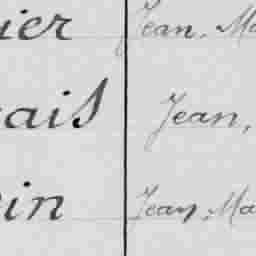 ier Jean, Ma
cais Jean,
in Jean, Ma